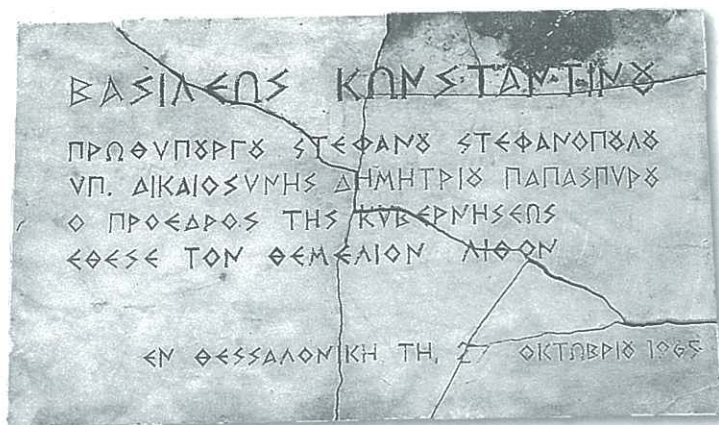 ΒΑΣΙΛΕΩΣ ΚΩΝΣΤΑΝΤΙΝȣ
ΠΡΩΘΥΠȣΡΓȣ ΣΤΕΦΑΝȣ ΣΤΕΦΑΝΟΠȣΛȣ
ΥΠ. ΔΙΚΑΙΟΣΥΝΗΣ ΔΗΜΗΤΡΙȣ ΠΑΠΑΣΠΥΡȣ
Ο ΠΡΟΕΔΡΟΣ ΤΗΣ ΚΥΒΕΡΝΗΣΕΩΣ
ΕΘΕΣΕ ΤΟΝ ΘΕΜΕΛΙΟΝ ΛΙΘΟΝ
ΕΝ ΘΕΣΣΑΛΟΝΙΚΗ ΤΗ, 27 ΟΚΤΩΒΡΙȣ 1965